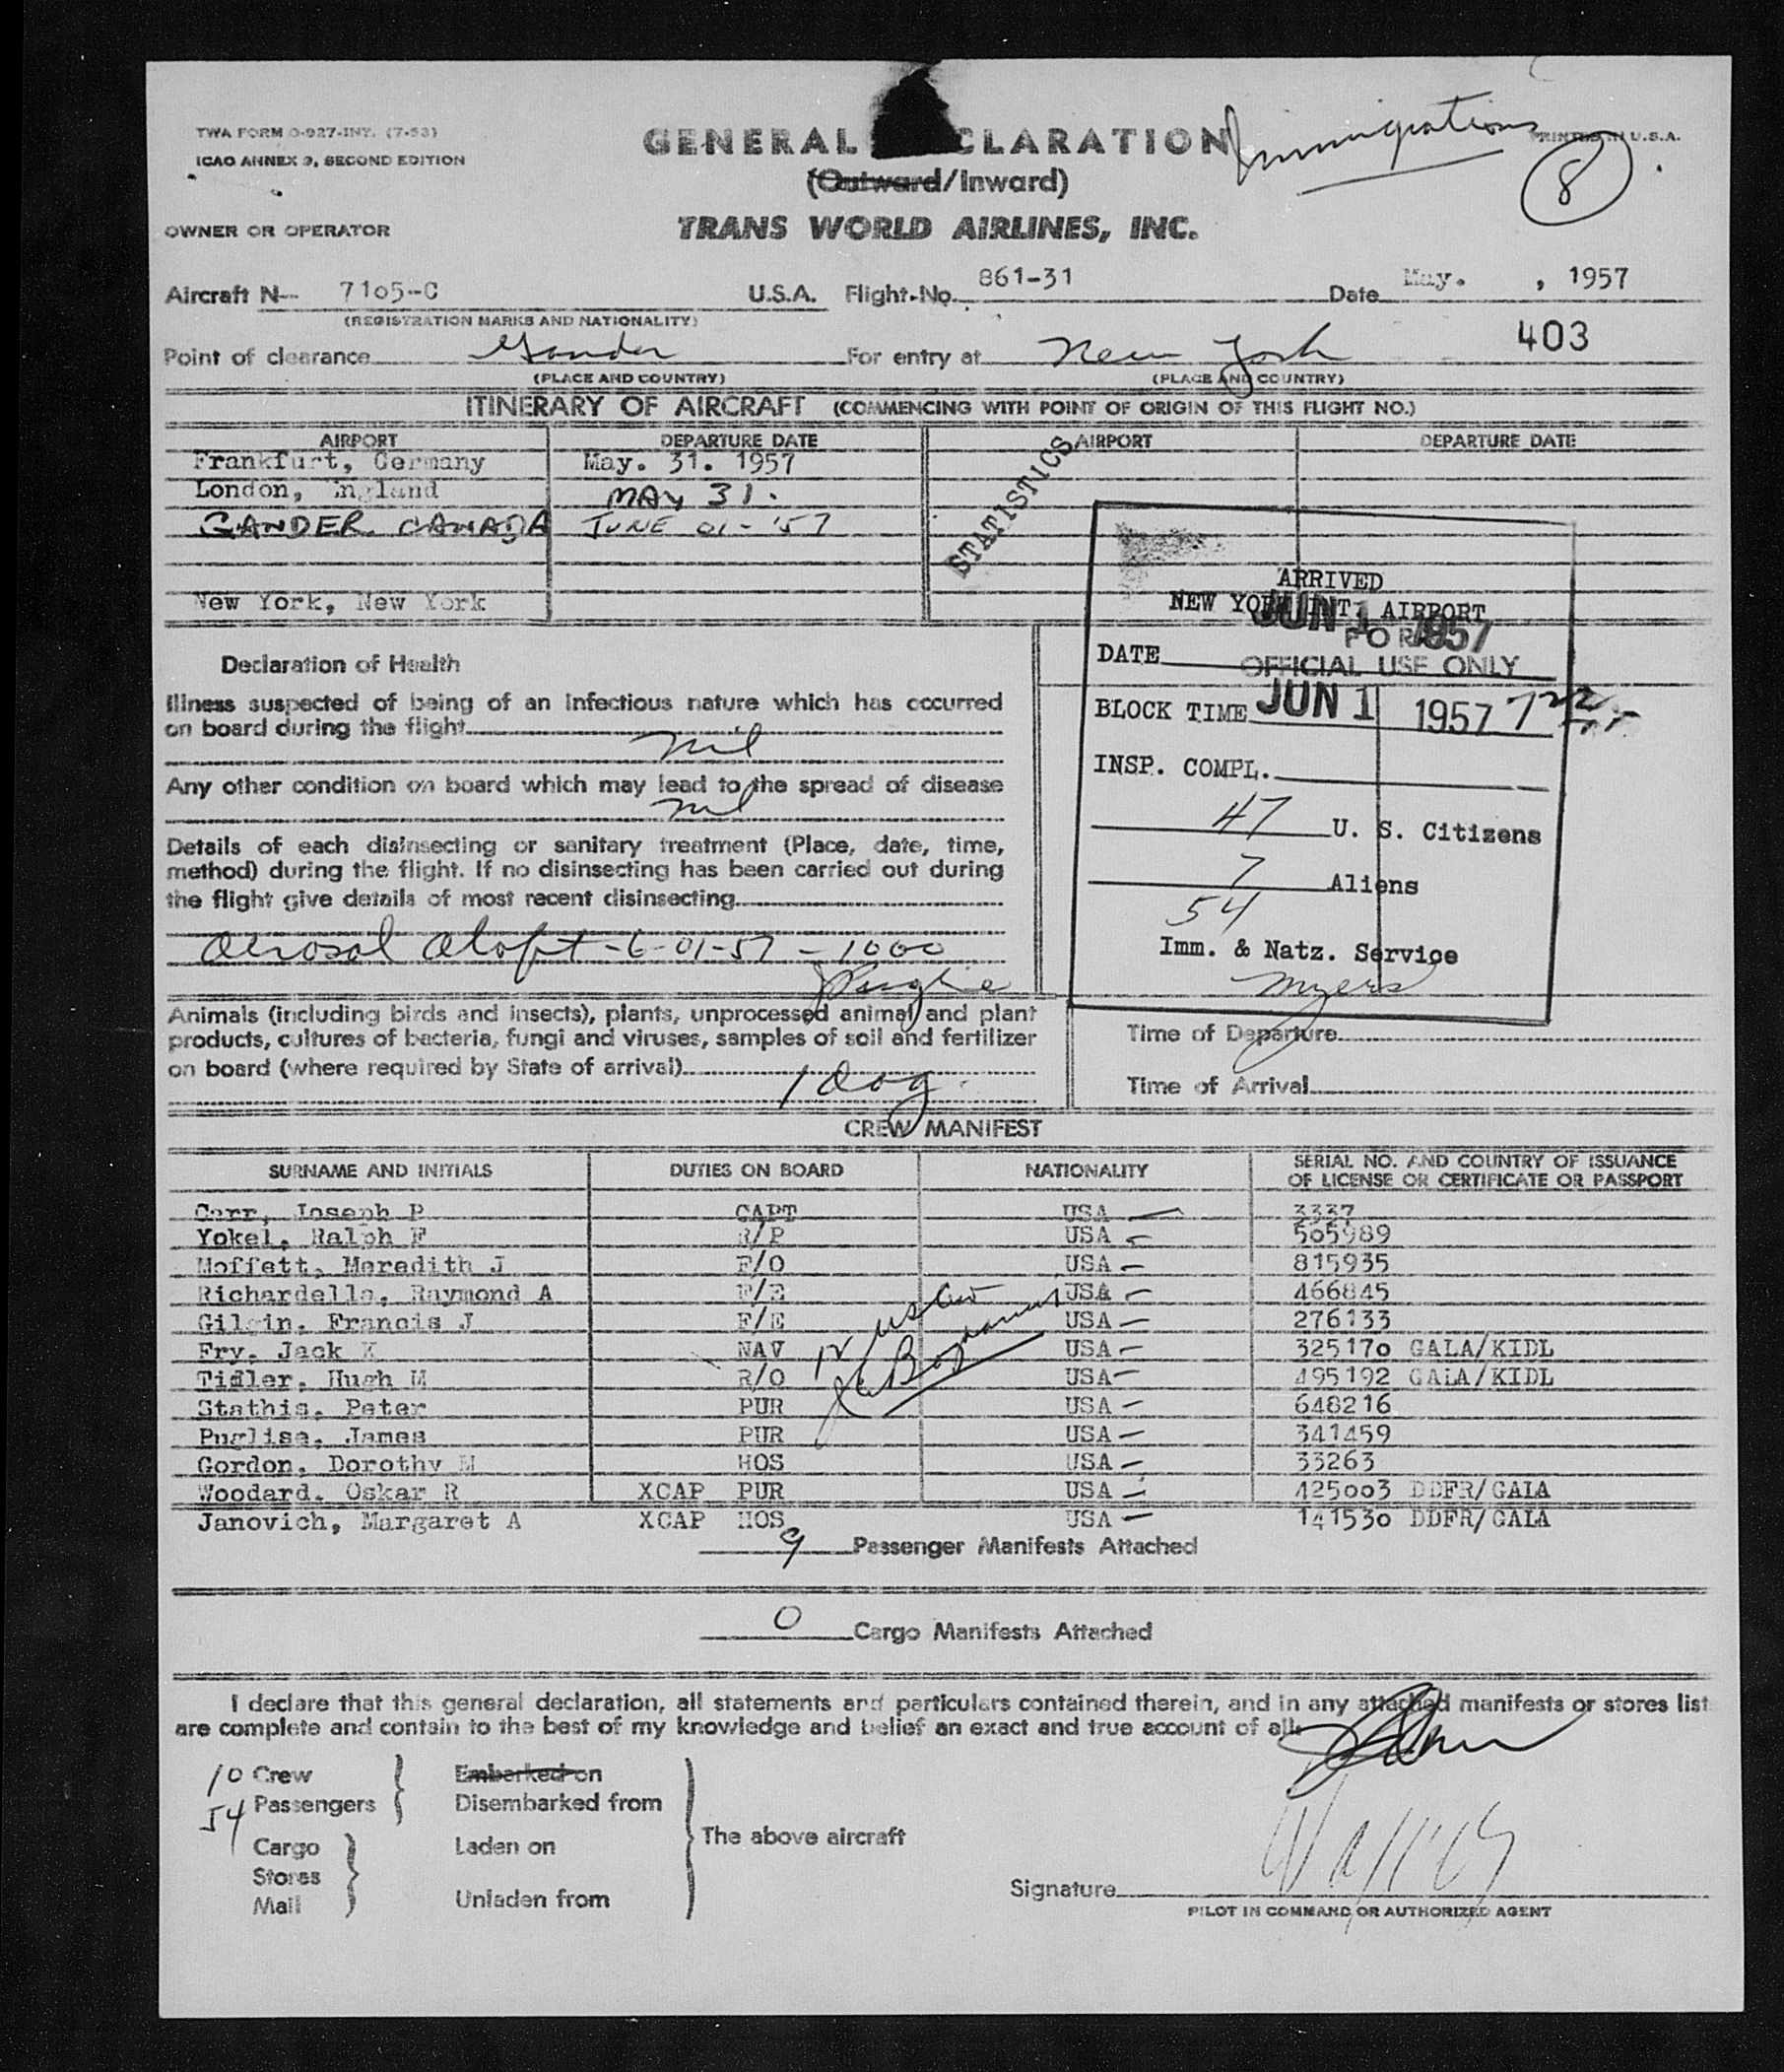 TWA FORM O-927-INT. (7-53)
ICAO ANNEX 9, SECOND EDITION
GENERAL CLARATION
Immigrations
PRINTED IN U.S.A.
8
(Outward/Inward)
OWNER OR OPERATOR
TRANS WORLD AIRLINES, INC.
Aircraft N- 7105-C U.S.A. Flight No. 861-31 Date May. , 1957
(REGISTRATION MARKS AND NATIONALITY)
403
Point of clearance Gander For entry at New York
(PLACE AND COUNTRY) (PLACE AND COUNTRY)
ITINERARY OF AIRCRAFT (COMMENCING WITH POINT OF ORIGIN OF THIS FLIGHT NO.)
AIRPORT DEPARTURE DATE AIRPORT DEPARTURE DATE
Frankfurt, Germany May. 31. 1957
London, England MAY 31.
GANDER. CANADA JUNE 01-'57
STATISTICS
New York, New York
ARRIVED
NEW YORK INT. AIRPORT
JUN 1 1957
FOR
DATE
OFFICIAL USE ONLY
BLOCK TIME JUN 1 1957 7 22
INSP. COMPL.
47 U. S. Citizens
7 Aliens
54
Imm. & Natz. Service
Myers
Declaration of Health
Illness suspected of being of an infectious nature which has occurred
on board during the flight
nil
Any other condition on board which may lead to the spread of disease
nil
Details of each disinsecting or sanitary treatment (Place, date, time,
method) during the flight. If no disinsecting has been carried out during
the flight give details of most recent disinsecting
Aerosol Aloft - 6-01-57 - 1000
Animals (including birds and insects), plants, unprocessed animal and plant
products, cultures of bacteria, fungi and viruses, samples of soil and fertilizer
on board (where required by State of arrival)
1 dog.
Time of Departure
Time of Arrival
CREW MANIFEST
SURNAME AND INITIALS DUTIES ON BOARD NATIONALITY SERIAL NO. AND COUNTRY OF ISSUANCE
OF LICENSE OR CERTIFICATE OR PASSPORT
Carr, Joseph P CAPT USA 3337
Yokel, Ralph F R/P USA 505989
Moffett, Meredith J F/O USA 815935
Richardella, Raymond A F/E USA 466845
Gilgin, Francis J F/E USA 276133
Fry, Jack K NAV USA 325170 GALA/KIDL
Tidler, Hugh M R/O USA 495192 GALA/KIDL
Stathis, Peter PUR USA 648216
Puglise, James PUR USA 341459
Gordon, Dorothy M HOS USA 33263
Woodard, Oskar R XCAP PUR USA 425003 DDFR/GALA
Janovich, Margaret A XCAP HOS USA 141530 DDFR/GALA
9 Passenger Manifests Attached
0 Cargo Manifests Attached
I declare that this general declaration, all statements and particulars contained therein, and in any attached manifests or stores list
are complete and contain to the best of my knowledge and belief an exact and true account of all:
10 Crew
54 Passengers
Embarked on
Disembarked from
Cargo
Stores
Mail
Laden on
Unladen from
The above aircraft
Signature
PILOT IN COMMAND OR AUTHORIZED AGENT